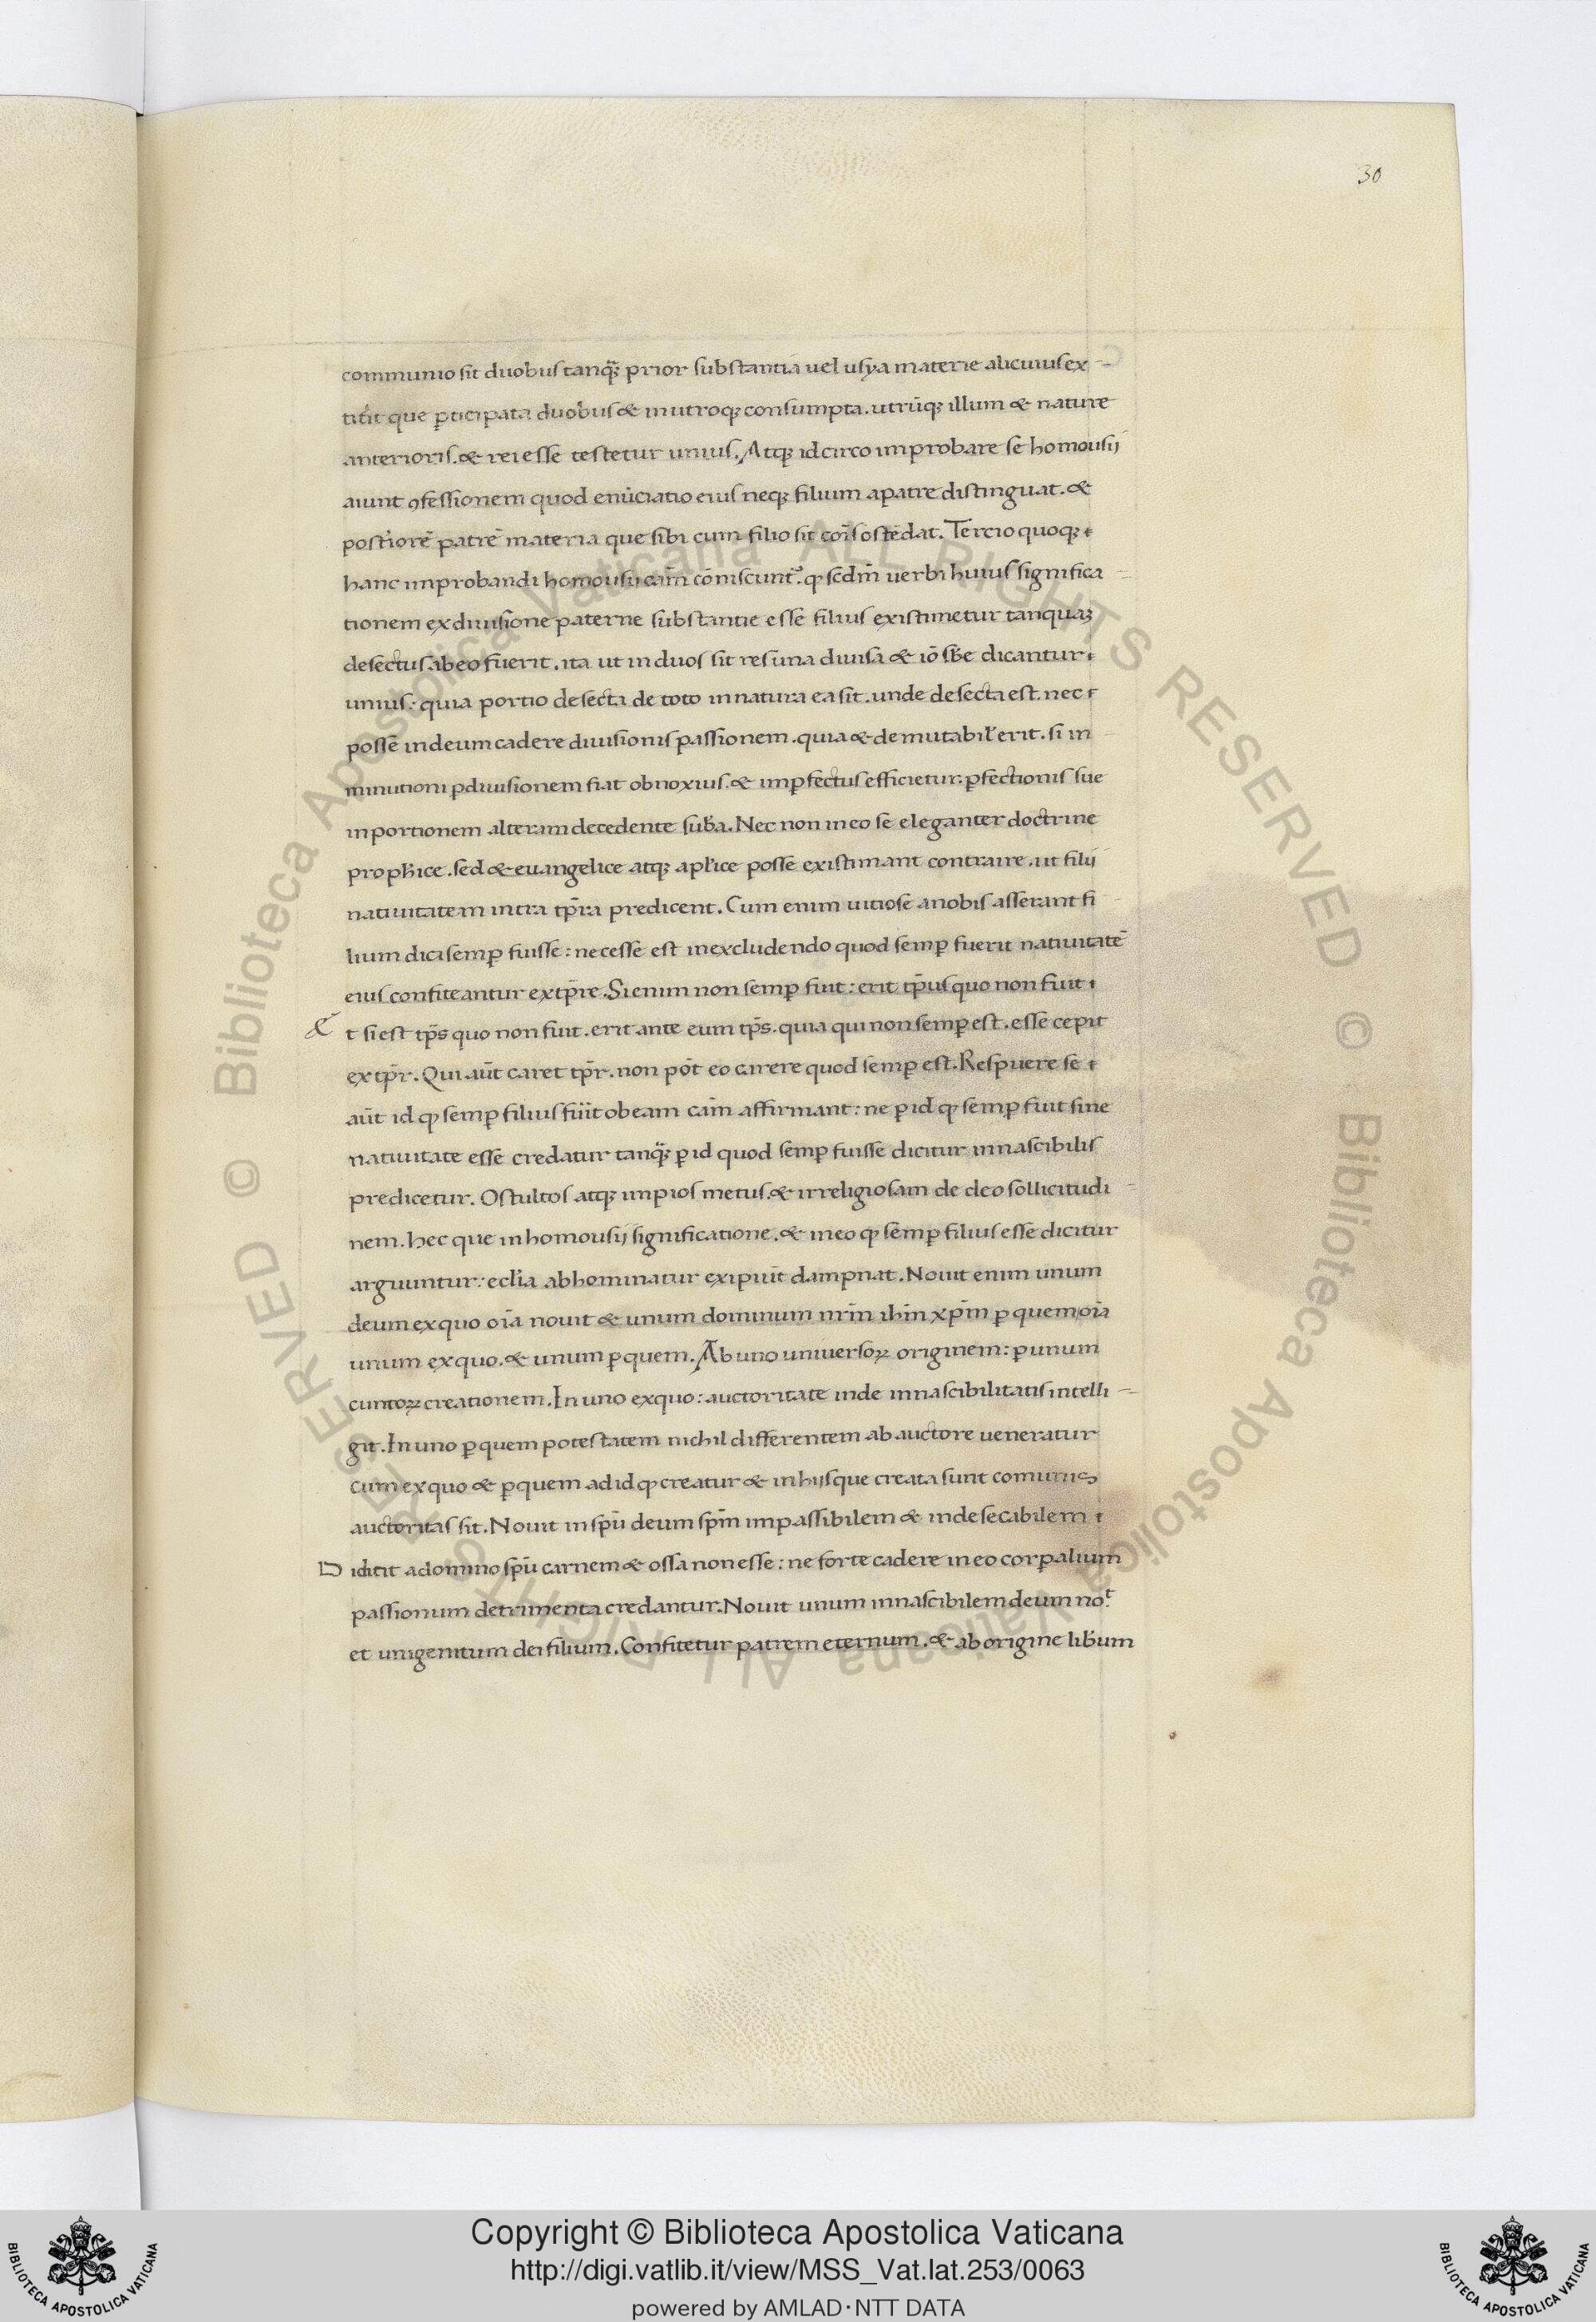 30
communio sit duobus tanq̃ꝫ prior substantia uel usya materie alicuius ex-
tit̃it que ꝑticipata duobus & in utroqꝫ consumpta. utrũqꝫ illum & nature
anterioris. & rei esse testetur unius. Atqꝫ idcirco improbare se homousij
aiunt ꝯfessionem quod enũciatio eius neqꝫ filium a patre distinguat. &
postiorẽ patrẽ materia que sibi cum filio sit coĩs ostẽdat. Tercio quoqꝫ
hanc improbandi homousii cãm cõniscunt᷑. ꝙ scdm̃ uerbi huius significa-
tionem ex diuisione paterne substantie esse filius existimetur tanquaꝫ
desectus ab eo fuerit. ita ut in duos sit res una diuisa & iõ sb̃e dicantur
unius: quia portio desecta de toto in natura ea sit. unde desecta est. nec
possẽ in deum cadere diuisionis passionem. quia & demutabił erit. si in
minutioni ꝑ diuisionem fiat obnoxius. & imꝑfectus efficietur. ꝑfectionis sue
in portionem alteram decedente sub̃a. Nec non in eo se eleganter doctrine
proph̃ice. sed & euangelice atqꝫ apl̃ice posse existimant contraire. ut filij
natiuitatem intra tp̃ra predicent. Cum enim uitiose a nobis asserant fi
lium dici semꝑ fuisse: necesse est in excludendo quod semꝑ fuerit natiuitatẽ
eius confiteantur ex tp̃re. Si enim non semꝑ fuit: erit tp̃us quo non fuit
& t si est tp̃s quo non fuit. erit ante eum tp̃s. quia qui non semꝑ est. esse cepit
ex tp̃r. Qui aũt caret tp̃r. non põt eo carere quod semꝑ est. Respuere se
aũt id ꝙ semꝑ filius fuit ob eam cãm affirmant: ne ꝑ id ꝙ semꝑ fuit sine
natiuitate esse credatur tanq̃ꝫ ꝑ id quod semꝑ fuisse dicitur innascibilis
predicetur. O stultos atqꝫ impios metus. & irreligiosam de deo sollicitudi-
nem. hec que in homousij significatione. & in eo ꝙ semꝑ filius esse dicitur
arguuntur: ecl̃ia abhominatur exipuit dampnat. Nouit enim unum
deum ex quo oĩa nouit & unum dominum nr̃m ihm̃ xp̃m ꝑ quem oĩa
unum ex quo. & unum ꝑ quem. Ab uno uniuersoꝝ originem: ꝑ unum
cuntoꝝ creationem. In uno ex quo: auctoritate inde innascibilitatis intelli-
git. In uno ꝑ quem potestatem nichil differentem ab auctore ueneratur
cum ex quo & ꝑ quem ad id ꝙ creatur & in hijs que creata sunt comunis
auctoritas sit. Nouit in sp̃u deum sp̃m impassibilem & indesecabilem
D idicit a domino sp̃u carnem & ossa non esse: ne forte cadere in eo corꝑalium
passionum detrimenta credantur. Nouit unum innascibilem deum noͭ.
et unigenitum dei filium. Confitetur patrem eternum. & ab origine lib̃um
Copyright © Biblioteca Apostolica Vaticana
http://digi.vatlib.it/view/MSS_Vat.lat.253/0063
powered by AMLAD·NTT DATA
BIBLIOTECA APOSTOLICA VATICANA
BIBLIOTECA APOSTOLICA VATICANA
© Biblioteca Apostolica Vaticana ALL RIGHTS RESERVED
© Biblioteca Apostolica Vaticana ALL RIGHTS RESERVED